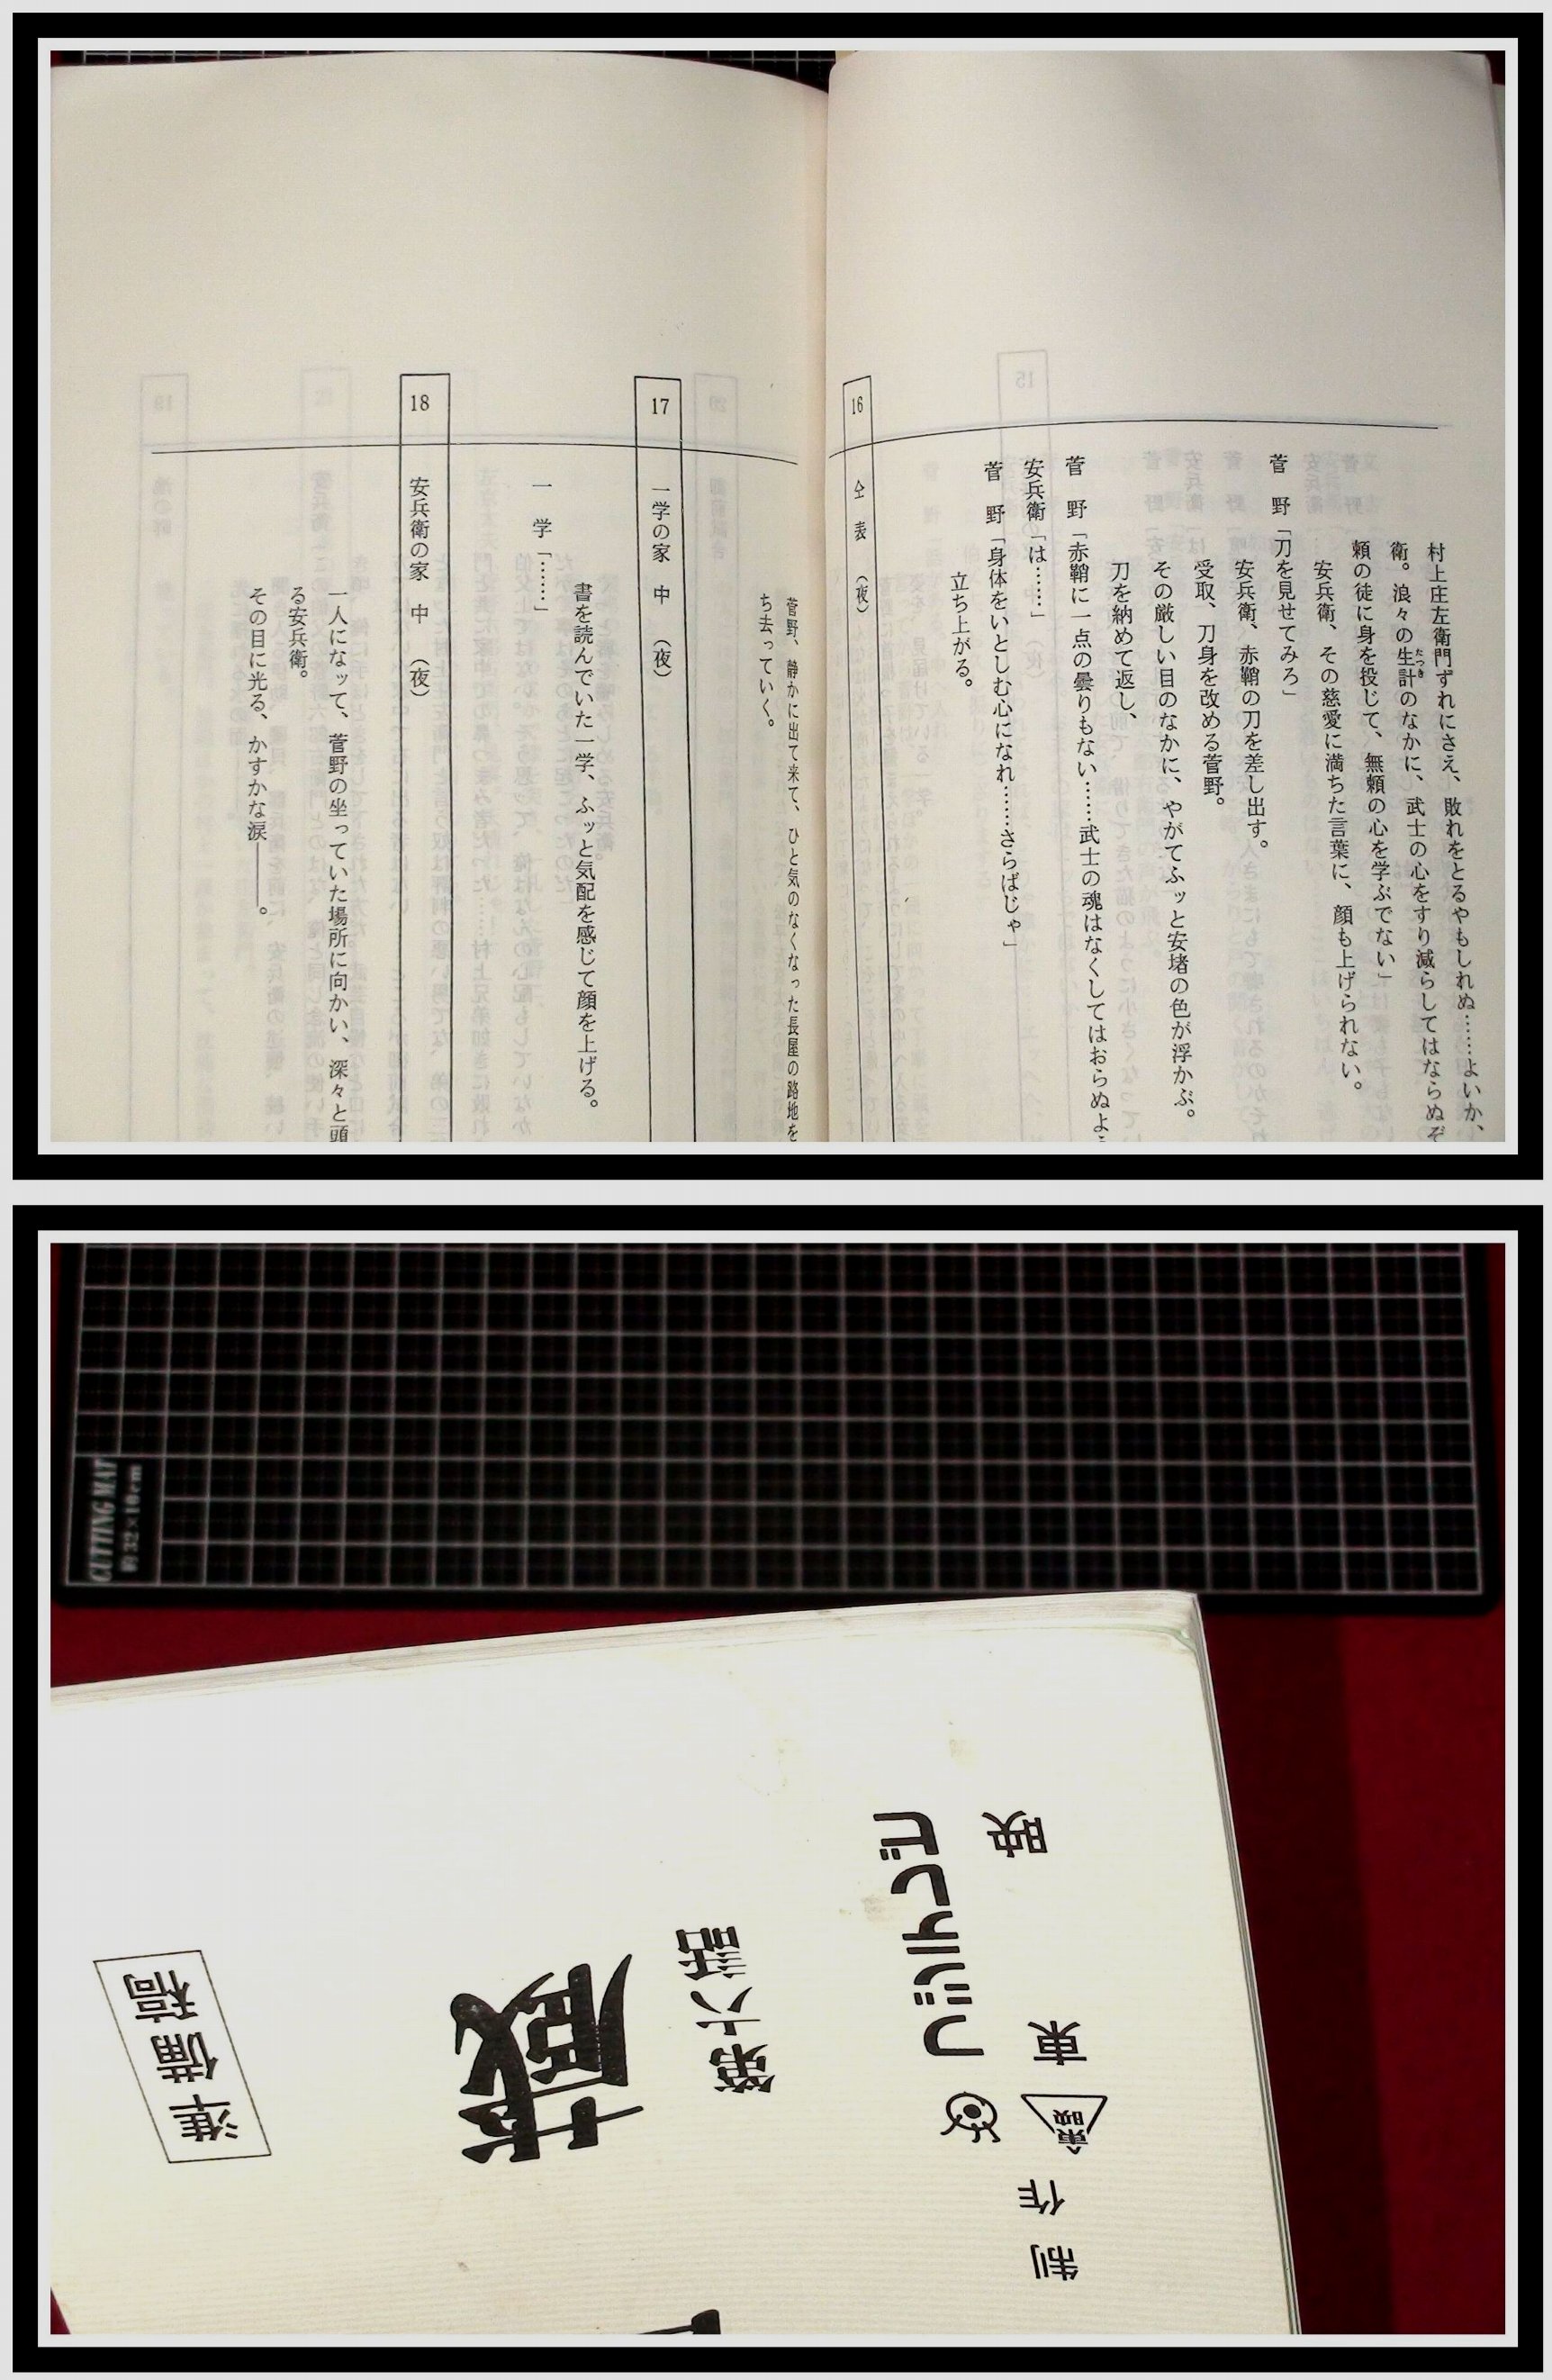 村上庄左衛門ずれにさえ、敗れをとるやもしれぬ……よいか、
衛。浪々の生計のなかに、武士の心をすり減らしてはならぬぞ
たつき
頼の徒に身を投じて、無頼の心を学ぶでない」
安兵衛、その慈愛に満ちた言葉に、顔も上げられない。
菅 野「刀を見せてみろ」
安兵衛、赤鞘の刀を差し出す。
受取、刀身を改める菅野。
その厳しい目のなかに、やがてふッと安堵の色が浮かぶ。
刀を納めて返し、
菅 野「赤鞘に一点の曇りもない……武士の魂はなくしてはおらぬよう
安兵衛「は……」
菅 野「身体をいとしむ心になれ……さらばじゃ」
立ち上がる。
16 仝 表 (夜)
菅野、静かに出て来て、ひと気のなくなった長屋の路地を
ち去っていく。
17 一学の家 中 (夜)
書を読んでいた一学、ふッと気配を感じて顔を上げる。
一 学「……」
18 安兵衛の家 中 (夜)
一人になッて、菅野の坐っていた場所に向かい、深々と頭
る安兵衛。
その目に光る、かすかな涙――。
CUTTING MAT
約32×10cm
制作 東映 東映
フジテレビ
第六話
蔵
準備稿